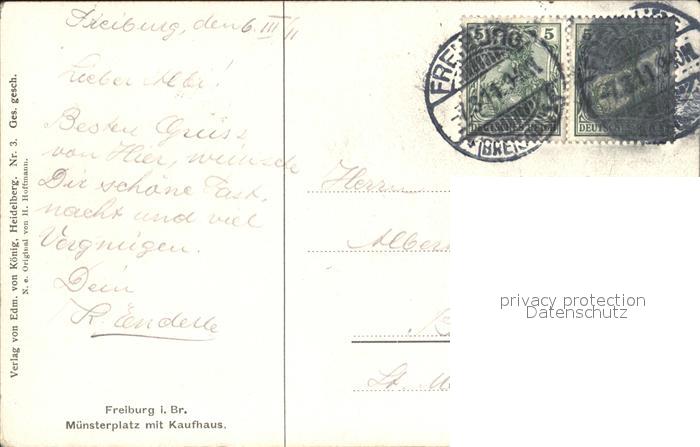 Freiburg, den 6. III/11
Lieber Albr!
Besten Gruss
von Hier, wünsche
Dir schöne Fast-
nacht und viel
Vergnügen.
Dein
K. Enderle
Freiburg i. Br.
Münsterplatz mit Kaufhaus.
Verlag von Edm. von König, Heidelberg. Nr. 3. Ges. gesch.
N. e. Original von H. Hoffmann.
5 5
FREIBURG
(BREISGAU)
DEUTSCHES REICH
Herrn
St.
privacy protection
Datenschutz